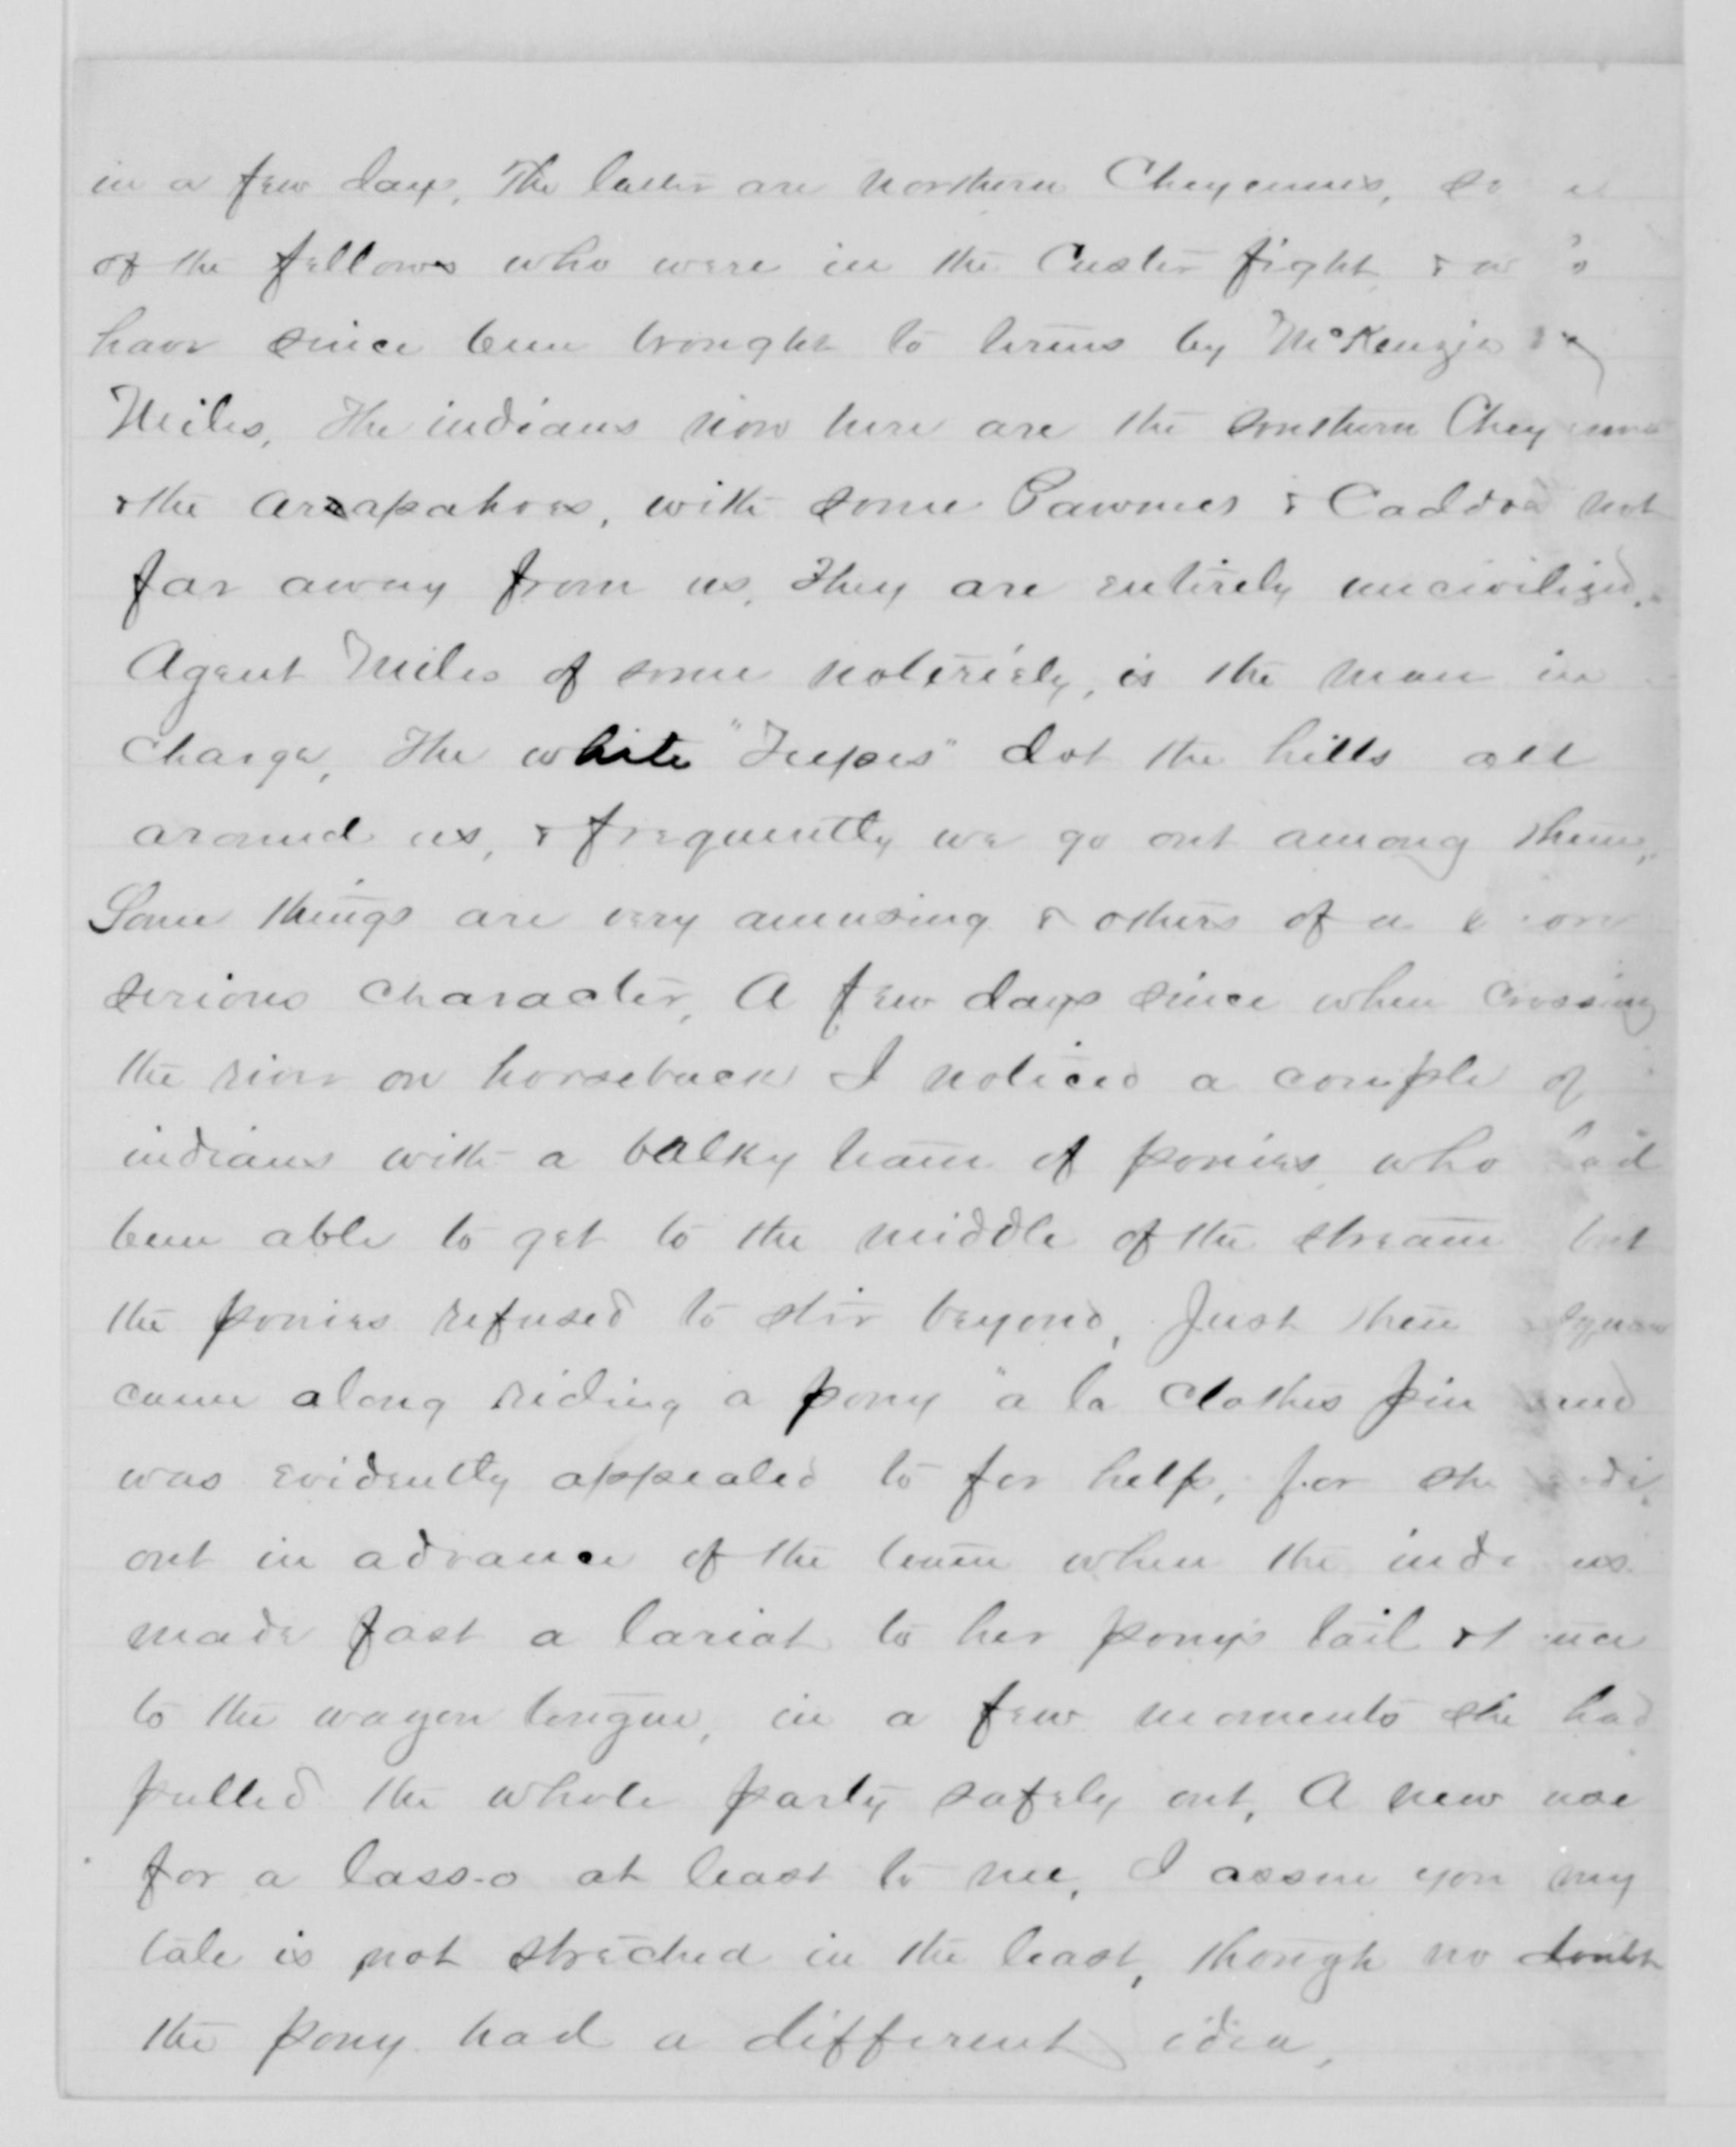 in a few days, The latter are northern Cheyennes,
of the fellows who were in the Custer fight &
have since been brought to terms by McKenzie &
Miles, The indians now here are the southern Cheyennes
& the arrapahoes, with some Pawnees & Caddos not
far away from us, They are entirely uncivilized.
Agent Miles of some noteriety, is the man in
charge, The white "Teepes" dot the hills all
around us, & frequently we go out among them,
Some things are very amusing & others of a more
serious character, A few days since when crossing
the river on horseback I noticed a couple of
indians with a balky team of ponies who had
been able to get to the middle of the stream but
the ponies refused to stir beyond, Just then squaw
came along riding a pony "a la clothes pin and
was evidently appealed to for help, for she
out in advance of the team when the indians
made fast a lariat to her pony's tail &
to the wagon tongue, in a few moments she had
pulled the whole party safely out, A new use
for a lasso at least to me, I assure you my
tale is not streched in the least, though no doubt
the pony had a different idea,